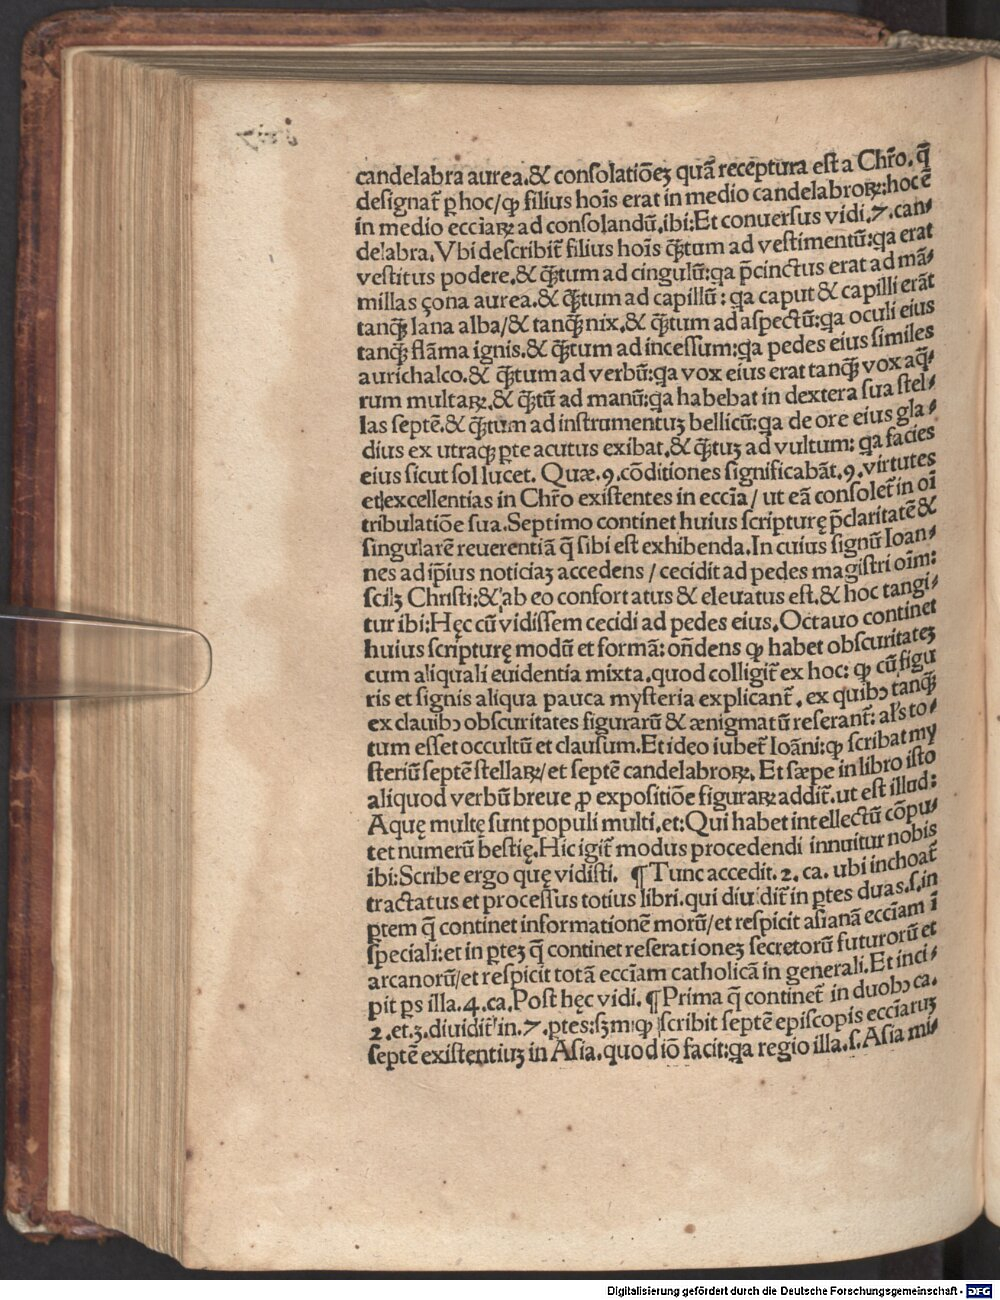 candelabra aurea.& conſolatiōeꝫ quā receptura eſt a Chr̄o.q̄
deſignat̄ ꝑ hoc/ꝙ filius hoīs erat in medio candelabroꝝ:hoc ē
in medio eccīaꝝ ad conſolandū.ibi:Et conuerſus vidi.7.can⸗
delabra.Vbi deſcribit̄ filius hoīs qͣ̄tum ad veſtimentū:qa erat
veſtitus podere.& qͣ̄tum ad cingulū:qa p̄cinctus erat ad mā⸗
millas çona aurea.& qͣ̄tum ad capillū: qa caput & capilli erāt
tanqͣ̄ lana alba/& tanqͣ̄ nix.& qͣ̄tum ad aſpectū:qa oculi eius
tanqͣ̄ flāma ignis.& qͣ̄tum ad inceſſum:qa pedes eius ſimiles
aurichalco.& qͣ̄tum ad verbū:qa vox eius erat tanqͣ̄ vox aq̄⸗
rum multaꝝ.& qͣ̄tū ad manū:qa habebat in dextera ſua ſtel⸗
las ſeptē.& qͣ̄tum ad inſtrumentuꝫ bellicū:qa de ore eius gla⸗
dius ex utraqꝫ ꝑte acutus exibat.& qͣ̄tuꝫ ad vultum: qa facies
eius ſicut ſol lucet. Quæ.9.cōditiones ſignificabāt.9.virtutes
et excellentias in Chr̄o exiſtentes in eccīa/ ut eā conſolet̄ in oī
tribulatiōe ſua.Septimo continet huius ſcripturę p̄claritatē &
ſingularē reuerentiā q̄ ſibi eſt exhibenda.In cuius ſignū Ioan⸗
nes ad ip̄ius noticiaꝫ accedens / cecidit ad pedes magiſtri oīm:
ſcilꝫ Chriſti:& ab eo confortatus & eleuatus eſt.& hoc tangi⸗
tur ibi:Hęc cū vidiſſem cecidi ad pedes eius.Octauo continet
huius ſcripturę modū et formā: oñdens ꝙ habet obſcuritateꝫ
cum aliquali euidentia mixta.quod colligit̄ ex hoc: ꝙ cū figu
ris et ſignis aliqua pauca myſteria explicant̄. ex quibꝰ tanqͣ̄
ex clauibꝰ obſcuritates figurarū & ænigmatū reſerant̄: al's to⸗
tum eſſet occultū et clauſum.Et ideo iubet̄ Ioāni:ꝙ ſcribat my
ſteriū ſeptē ſtellaꝝ/et ſeptē candelabroꝝ. Et ſæpe in libro iſto
aliquod verbū breue ꝓ expoſitiōe figuraꝝ addit̄.ut eſt illud:
Aquę multę ſunt populi multi.et:Qui habet intellectū cōpu⸗
tet numerū beſtię.Hic igit̄ modus procedendi innuitur nobis
ibi:Scribe ergo quę vidiſti. ¶Tunc accedit.2.ca.ubi inchoat̄
tractatus et proceſſus totius libri.qui diuidit̄ in ꝑtes duas.ſ.in
ꝑtem q̄ continet informationē morū/et reſpicit aſianā eccīam ī
ſpeciali:et in ꝑteꝫ q̄ continet reſerationeꝫ ſecretorū futurorū et
arcanorū/et reſpicit totā eccīam catholicā in generali.Et inci⸗
pit ꝑs illa.4.ca.Poſt hęc vidi.¶Prima q̄ continet̄ in duobꝰ ca.
2.et.3.diuidit̄ in.7.ꝑtes:ſꝫm ꝙ ſcribit ſeptē epiſcopis eccīaruꝫ
ſeptē exiſtentiuꝫ in Aſia.quod iō facit:qa regio illa.ſ.Aſia mi⸗
Digitalisierung gefördert durch die Deutsche Forschungsgemeinschaft - DFG